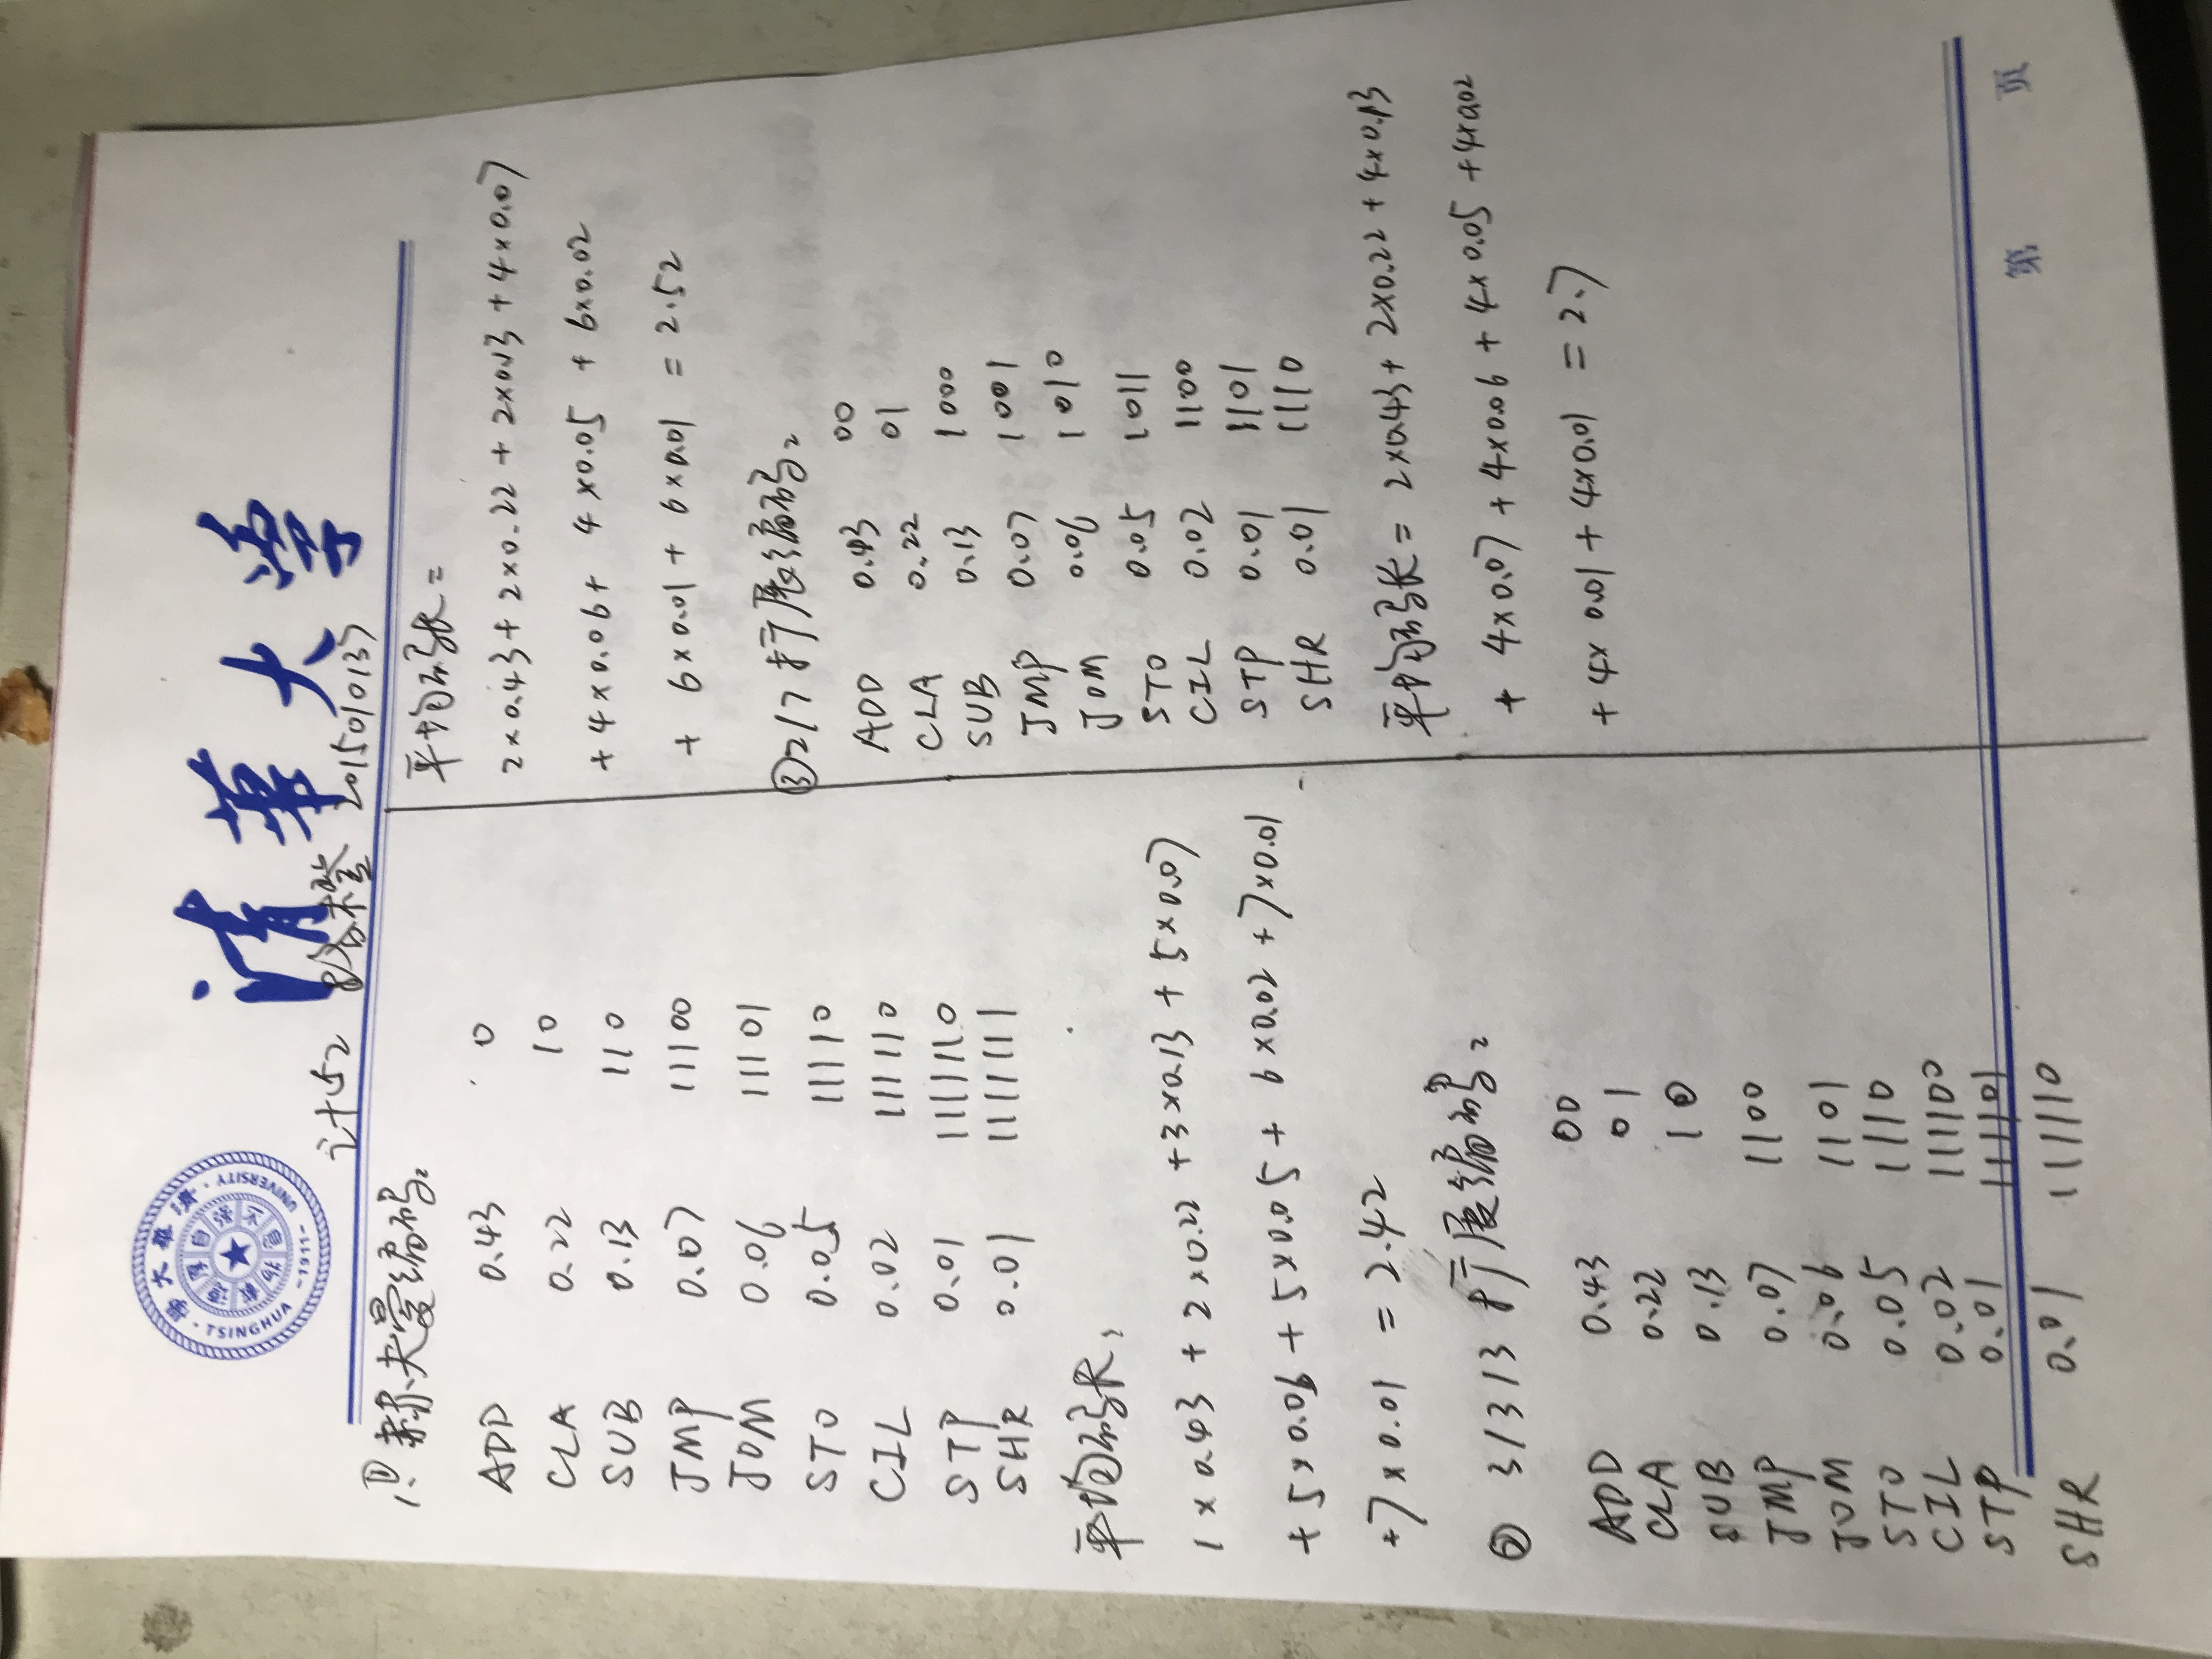 清華大學
TSINGHUA UNIVERSITY
-1911-
计52 2015010137
1.① 赫夫曼编码:
ADD 0.43 0
CLA 0.22 10
SUB 0.13 110
JMP 0.07 11100
JOM 0.06 11101
STO 0.05 11110
CIL 0.02 111110
STP 0.01 1111110
SHR 0.01 1111111
平均码长:
1×0.43+2×0.22+3×0.13+5×0.07
+5×0.06+5×0.05+6×0.02+7×0.01
+7×0.01=2.42
② 3/3/3 扩展编码:
ADD 0.43 00
CLA 0.22 01
SUB 0.13 10
JMP 0.07 1100
JOM 0.06 1101
STO 0.05 1110
CIL 0.02 111100
STP 0.01 111101
SHR 0.01 111110
平均码长=
2×0.43+2×0.22+2×0.13+4×0.07
+4×0.06+4×0.05+6×0.02
+6×0.01+6×0.01=2.52
③2/7 扩展编码:
ADD 0.43 00
CLA 0.22 01
SUB 0.13 1000
JMP 0.07 1001
JOM 0.06 1010
STO 0.05 1011
CIL 0.02 1100
STP 0.01 1101
SHR 0.01 1110
平均码长=2×0.43+2×0.22+4×0.13
+4×0.07+4×0.06+4×0.05+4×0.02
+4×0.01+4×0.01=2.7
第 页